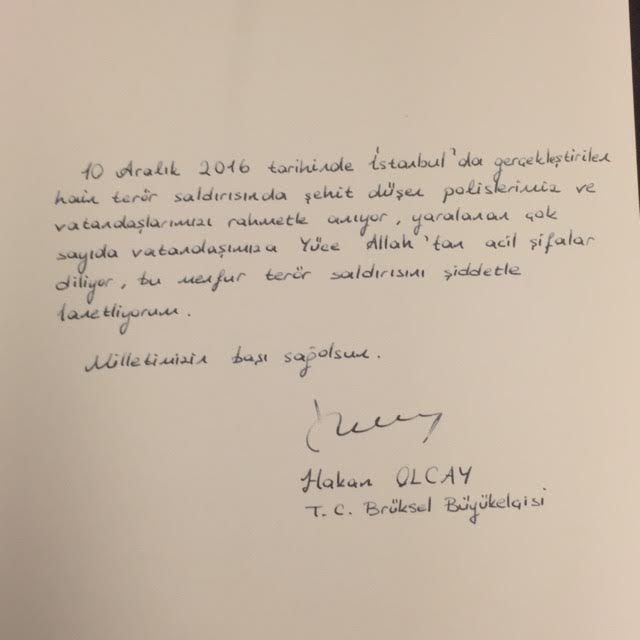 10 Aralık 2016 tarihinde İstanbul'da gerçekleştirilen
hain terör saldırısında şehit düşen polislerimiz ve
vatandaşlarımızı rahmetle anıyor, yaralanan çok
sayıda vatandaşımıza Yüce Allah'tan acil şifalar
diliyor, bu menfur terör saldırısını şiddetle
lanetliyorum.
Milletimizin başı sağolsun.
Hakan OLCAY
T.C. Brüksel Büyükelçisi